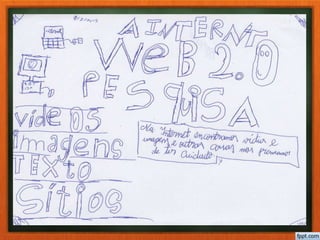 A INTERNT
WEB 2.0
PESQUISA
videos
imagens
TEXTO
Sítios
Na Internet encontramos vidios e
imagens e outras coisas mas precisamos
de ter cuidado
fppt.com